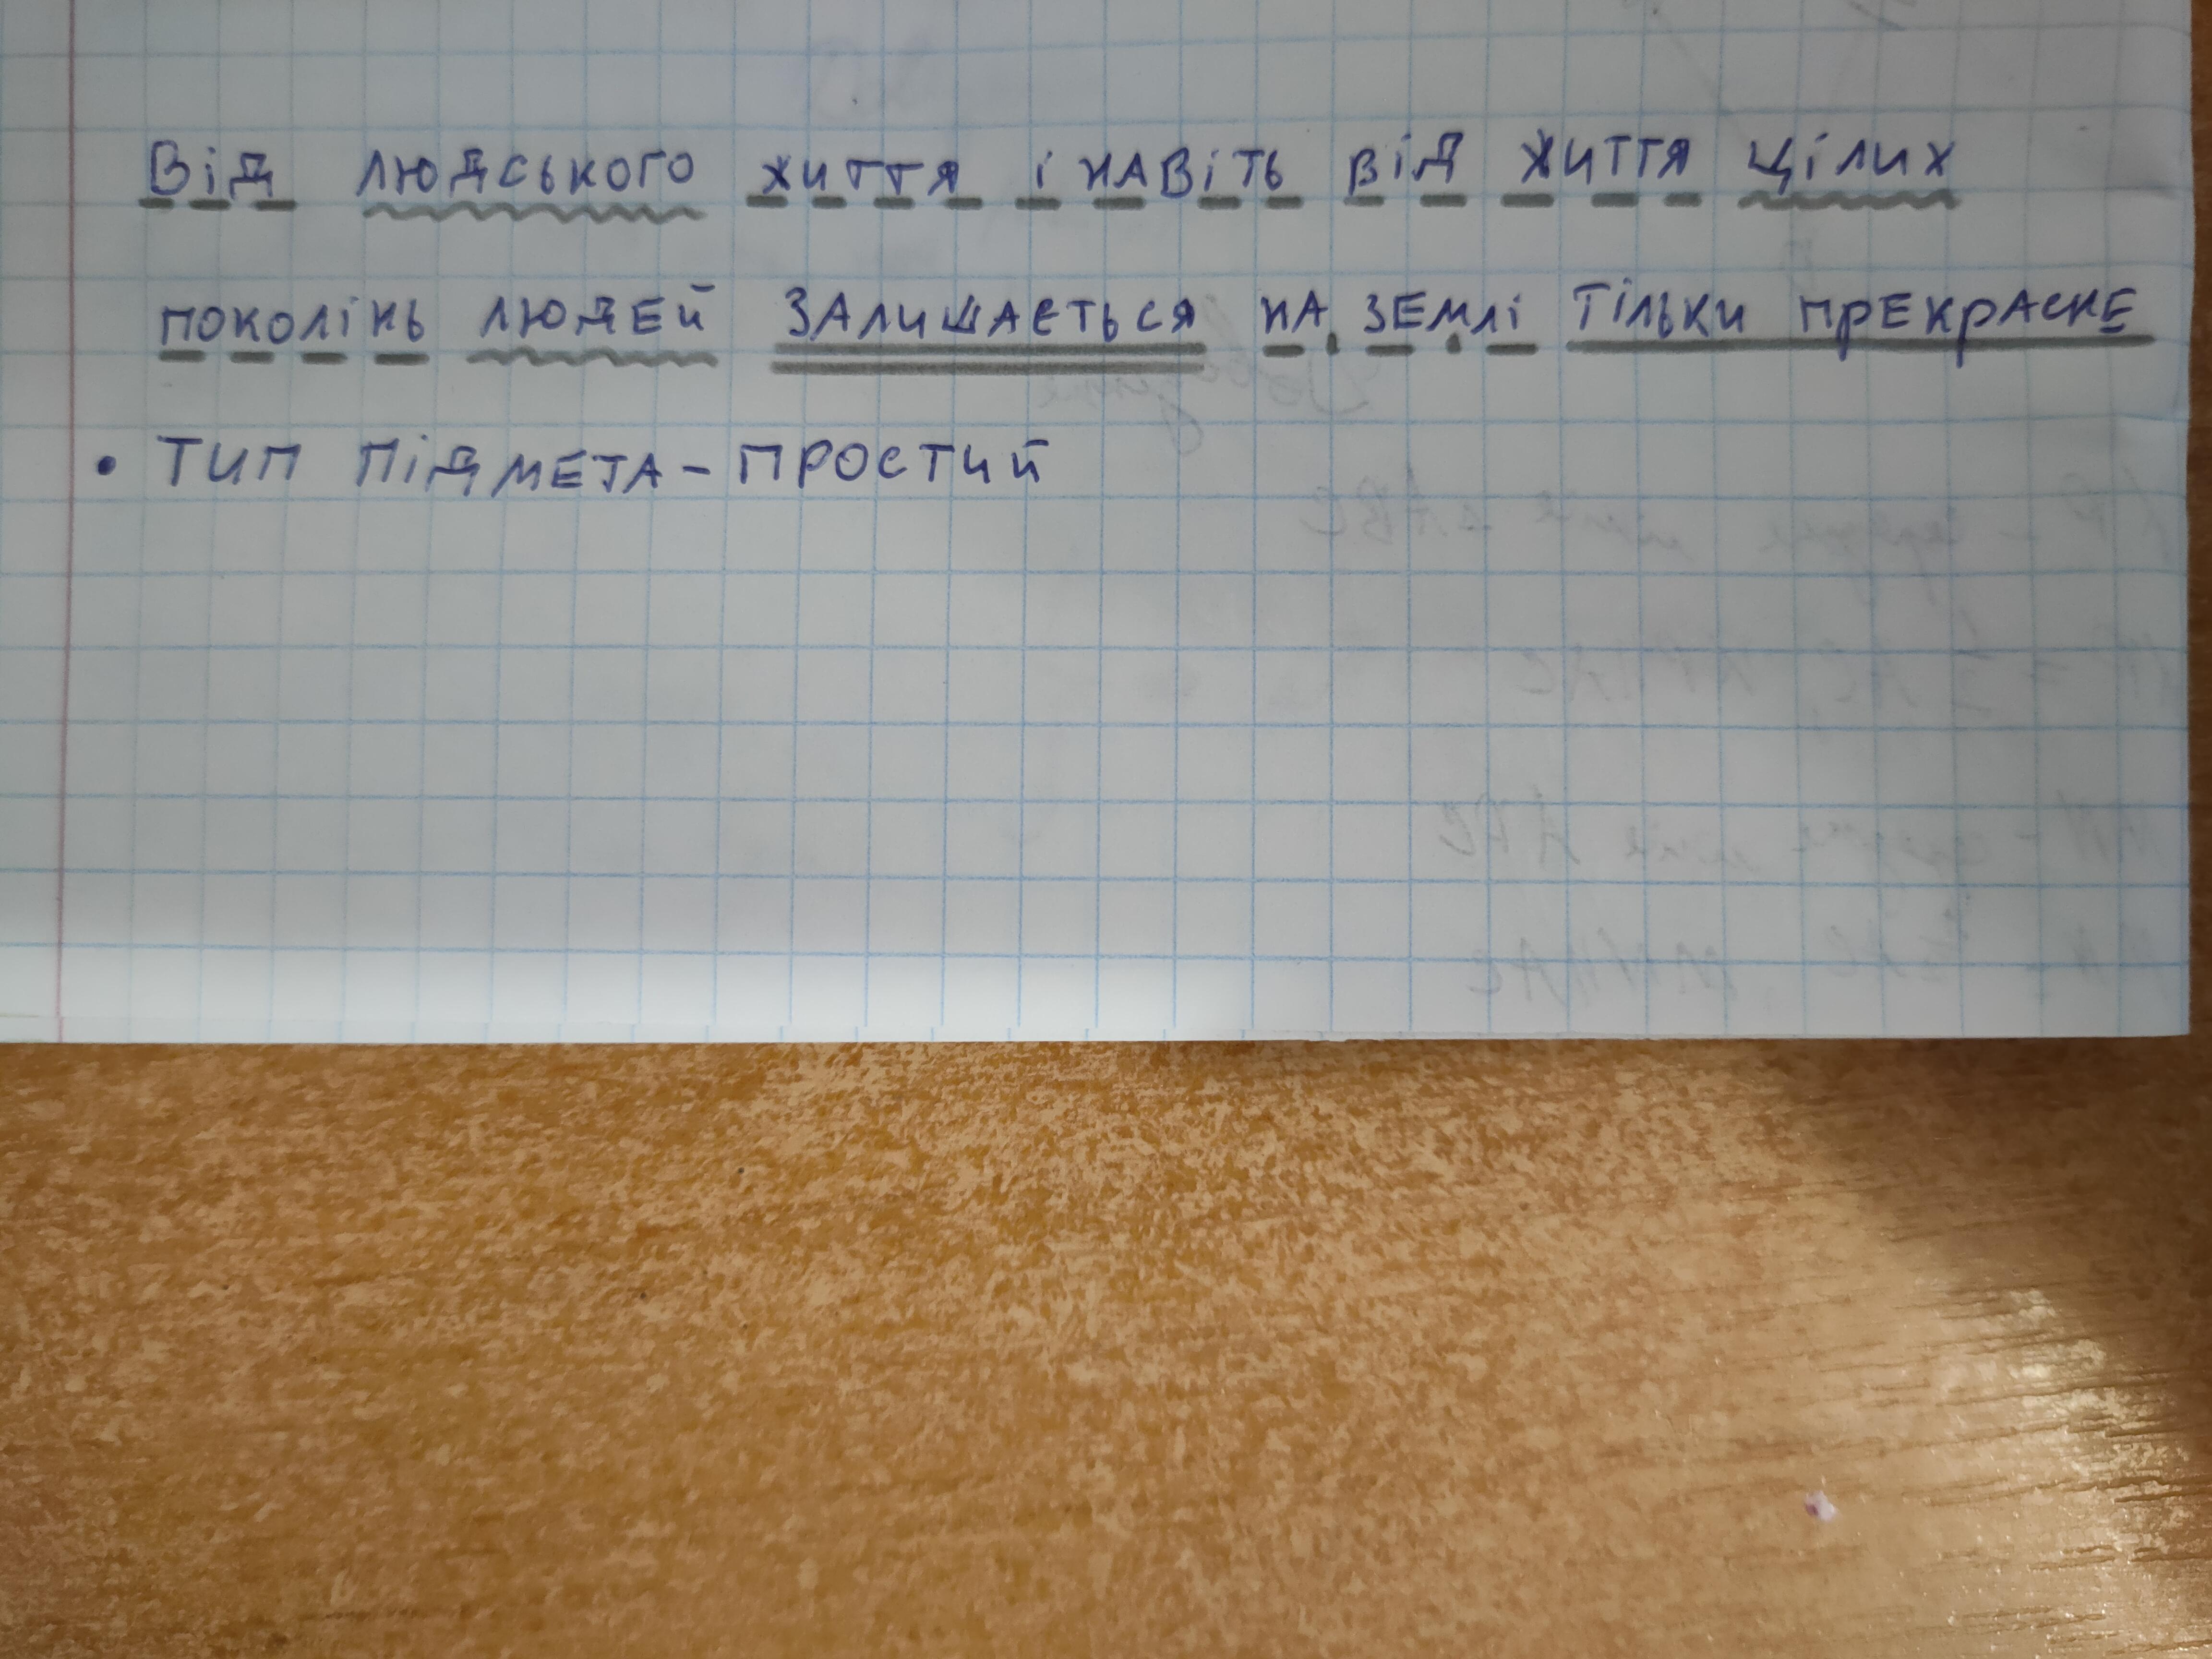 Від людського життя і навіть від життя цілих
поколінь людей залишається на землі тільки прекрасне
• Тип підмета - простий